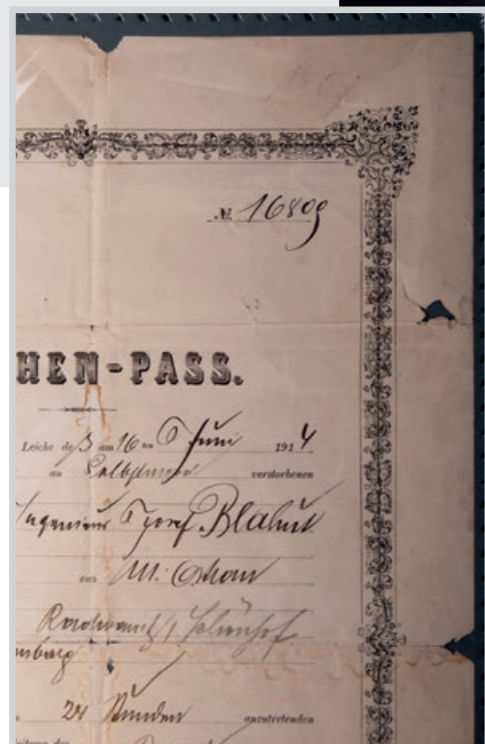 № 16809
HEN-PASS.
Leiche des am 16ten Juni 1914
an Selbstmord verstorbenen
Ingenieur Josef Blahut
aus M: Ostrau
24 Stunden anzutretenden